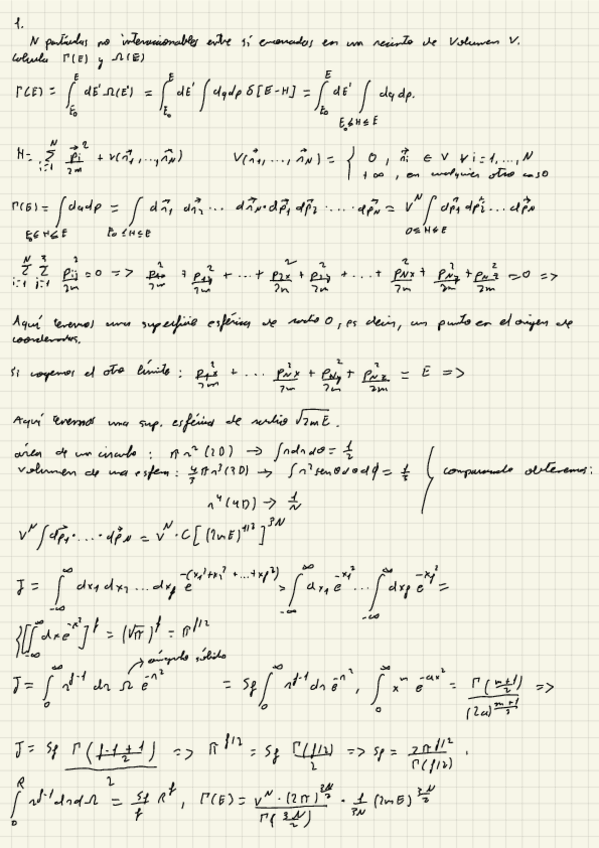 1.
N partículas no interaccionables entre sí encerradas en un recinto de Volumen V.
Calcula Γ(E) y Ω(E)
Γ(E) = ∫_{E₀}^{E} dE' Ω(E') = ∫_{E₀}^{E} dE' ∫ dq dp δ[E-H] = ∫_{E₀}^{E} dE' ∫_{E₀≤H≤E} dq dp.
H = Σ_{i=1}^{N} p⃗i²/2m + V(r⃗1, ..., r⃗N) V(r⃗1, ..., r⃗N) = { 0, r⃗i ∈ V ∀ i = 1, ..., N
+∞, en cualquier otro caso
Γ(E) = ∫_{E₀≤H≤E} dq dp = ∫_{E₀≤H≤E} dr⃗1 dr⃗2 ... dr⃗N · dp⃗1 dp⃗2 · ... · dp⃗N = V^N ∫_{0≤H≤E} dp⃗1 dp⃗2 ... dp⃗N
Σ_{i=1}^{N} Σ_{j=1}^{3} pij²/2m = 0 => p1x²/2m + p1y²/2m + ... + p2x²/2m + p2y²/2m + ... + pNx²/2m + pNy²/2m + pNz²/2m = 0 =>
Aquí tenemos una superficie esférica de radio 0, es decir, un punto en el origen de
coordenadas.
Si cogemos el otro límite: p1x²/2m + ... pNx²/2m + pNy²/2m + pNz²/2m = E =>
Aquí tenemos una sup. esférica de radio √2mE.
área de un círculo: πr² (2D) → ∫ r dr dθ = 1/2
volumen de una esfera: 4/3 πr³ (3D) → ∫ r² senθ dθ dϕ = 1/3 } comparando obtenemos:
r⁴ (4D) → 1/N
V^N ∫ dp⃗1 · ... · dp⃗N = V^N · C [(2mE)^{1/2}]^{3N}
J = ∫_{-∞}^{∞} dx1 dx2 ... dxf e^{-(x1²+x2²+...+xf²)} = ∫_{-∞}^{∞} dx1 e^{-x1²} ... ∫_{-∞}^{∞} dxf e^{-xf²} =
{[∫_{-∞}^{∞} dx e^{-x²}]^f = (√π)^f = π^{f/2}
→ ángulo sólido
J = ∫_{0}^{∞} r^{f-1} dr Ω e^{-r²} = Sf ∫_{0}^{∞} r^{f-1} dr e^{-r²}, ∫_{0}^{∞} x^m e^{-ax²} = Γ((m+1)/2)/(2a)^{(m+1)/2} =>
J = Sf Γ((f-1+1)/2)/2 => π^{f/2} = Sf Γ(f/2)/2 => Sf = 2π^{f/2}/Γ(f/2).
∫_{0}^{R} r^{f-1} dr dΩ = Sf/f R^f, Γ(E) = V^N · (2π)^{3N/2}/Γ(3N/2) · 1/3N (2mE)^{3N/2}